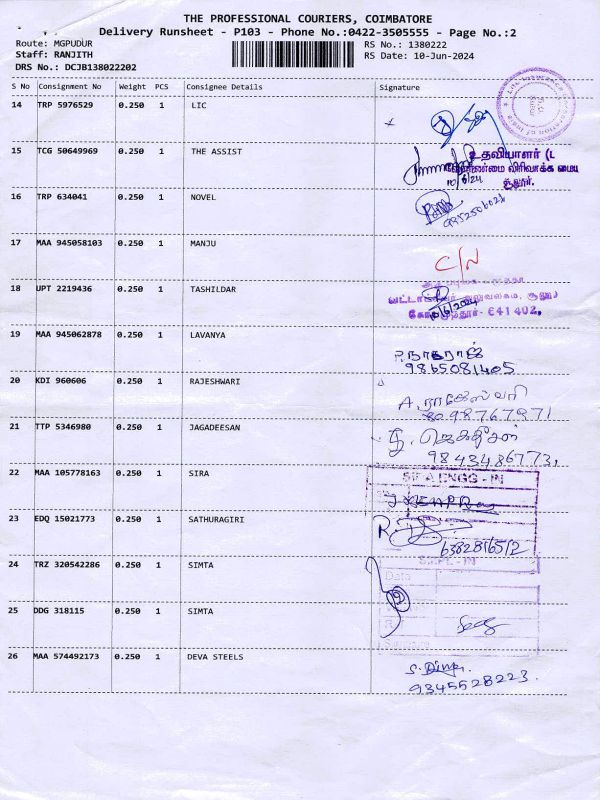 THE PROFESSIONAL COURIERS, COIMBATORE
Delivery Runsheet - P103 - Phone No.:0422-3505555 - Page No.:2
Route: MGPUDUR
RS No.: 1380222
Staff: RANJITH
RS Date: 10-Jun-2024
DRS No.: DCJB138022202
S No Consignment No Weight PCS Consignee Details Signature
14 TRP 5976529 0.250 1 LIC
15 TCG 50649969 0.250 1 THE ASSIST
உதவியாளர்
விரிவாக்க மைய
சூலூர்.
10/6/24
16 TRP 634041 0.250 1 NOVEL
9952506021
17 MAA 945058103 0.250 1 MANJU
C/N
18 UPT 2219436 0.250 1 TASHILDAR
அலுவலகம், சூலூர்
10/6/2024
641402.
19 MAA 945062878 0.250 1 LAVANYA
P.நாகராஜ்
9865081405
20 KDI 960606 0.250 1 RAJESHWARI
A. ராஜேஸ்வரி
8098767971
21 TTP 5346980 0.250 1 JAGADEESAN
ஜெகதீசன்
9843486773,
22 MAA 105778163 0.250 1 SIRA
SIRA ENGG - IN
23 EDQ 15021773 0.250 1 SATHURAGIRI
6382816512
24 TRZ 320542286 0.250 1 SIMTA
Date
25 DDG 318115 0.250 1 SIMTA
26 MAA 574492173 0.250 1 DEVA STEELS
9345528223